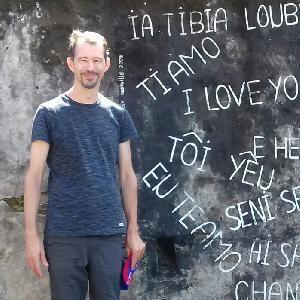 IA TIBIA LOUB
TI AMO
I LOVE YO
TÔI YÊU
E HE
EU TE AMO
SENI SE
HI SA
CHAN